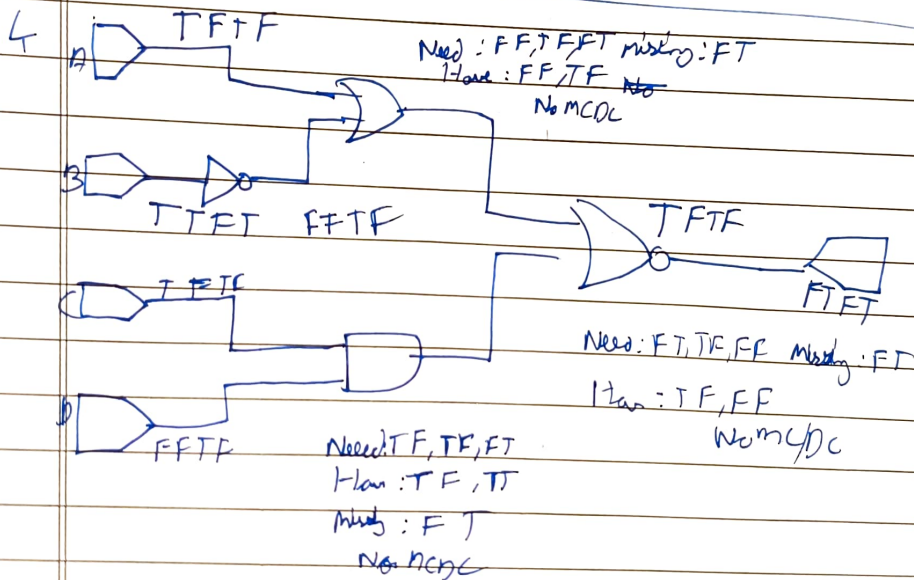 4
TFTF
A
Need : FF,TF,FT missing : FT
Have : FF,TF No
No MCDC
B
TTFT FFTF
TFTF
C
FTFT
Need : FT,TF,FF Missing : FT
Have : TF,FF
No MC/DC
D
FFTF
Need: TF, TF, FT
Have : TF, TT
Missing : FT
No MCDC